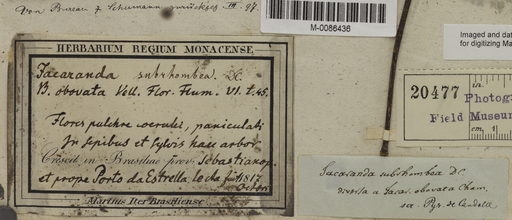 Von Bureau & Schumann zurückges. III. 97.
M-0086436
Imaged and dat
for digitizing Ma
HERBARIUM REGIUM MONACENSE
Jacaranda subrhombea DC
B. obovata Vell. Flor. Flum. VI. t. 45.
Flores pulchre coerulei, paniculati
In sepibus et sylvis haec arbor
Crescit in Brasiliae prov. Sebastianop.
et prope Porto da Estrella lecta fuit 1817
Octobri
Martius Iter Brasiliense
20477
in.
Photogra
Field Museum
cm.
Jacaranda subrhombea DC.
diversa a Jacar. obovata Cham.
sec. Pyr. de Candolle